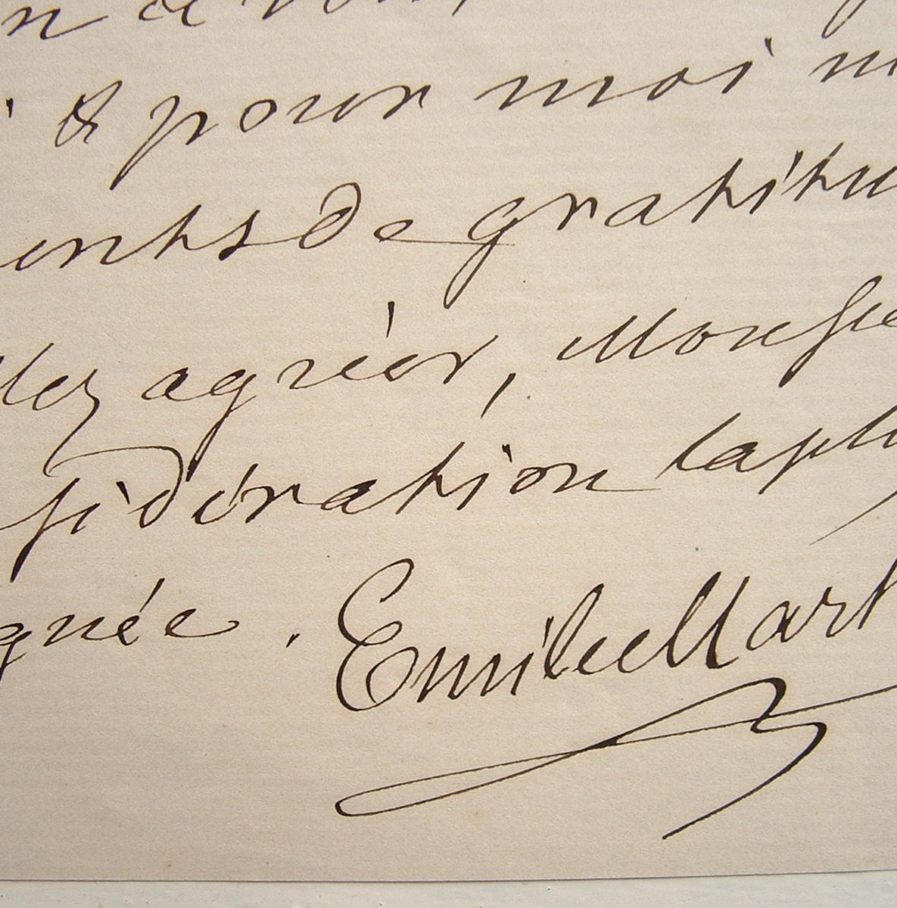 n à vous,
& pour moi m
ents de gratitu
llez agréer, Monsie
sidération la plu
gnée. Emile Mart